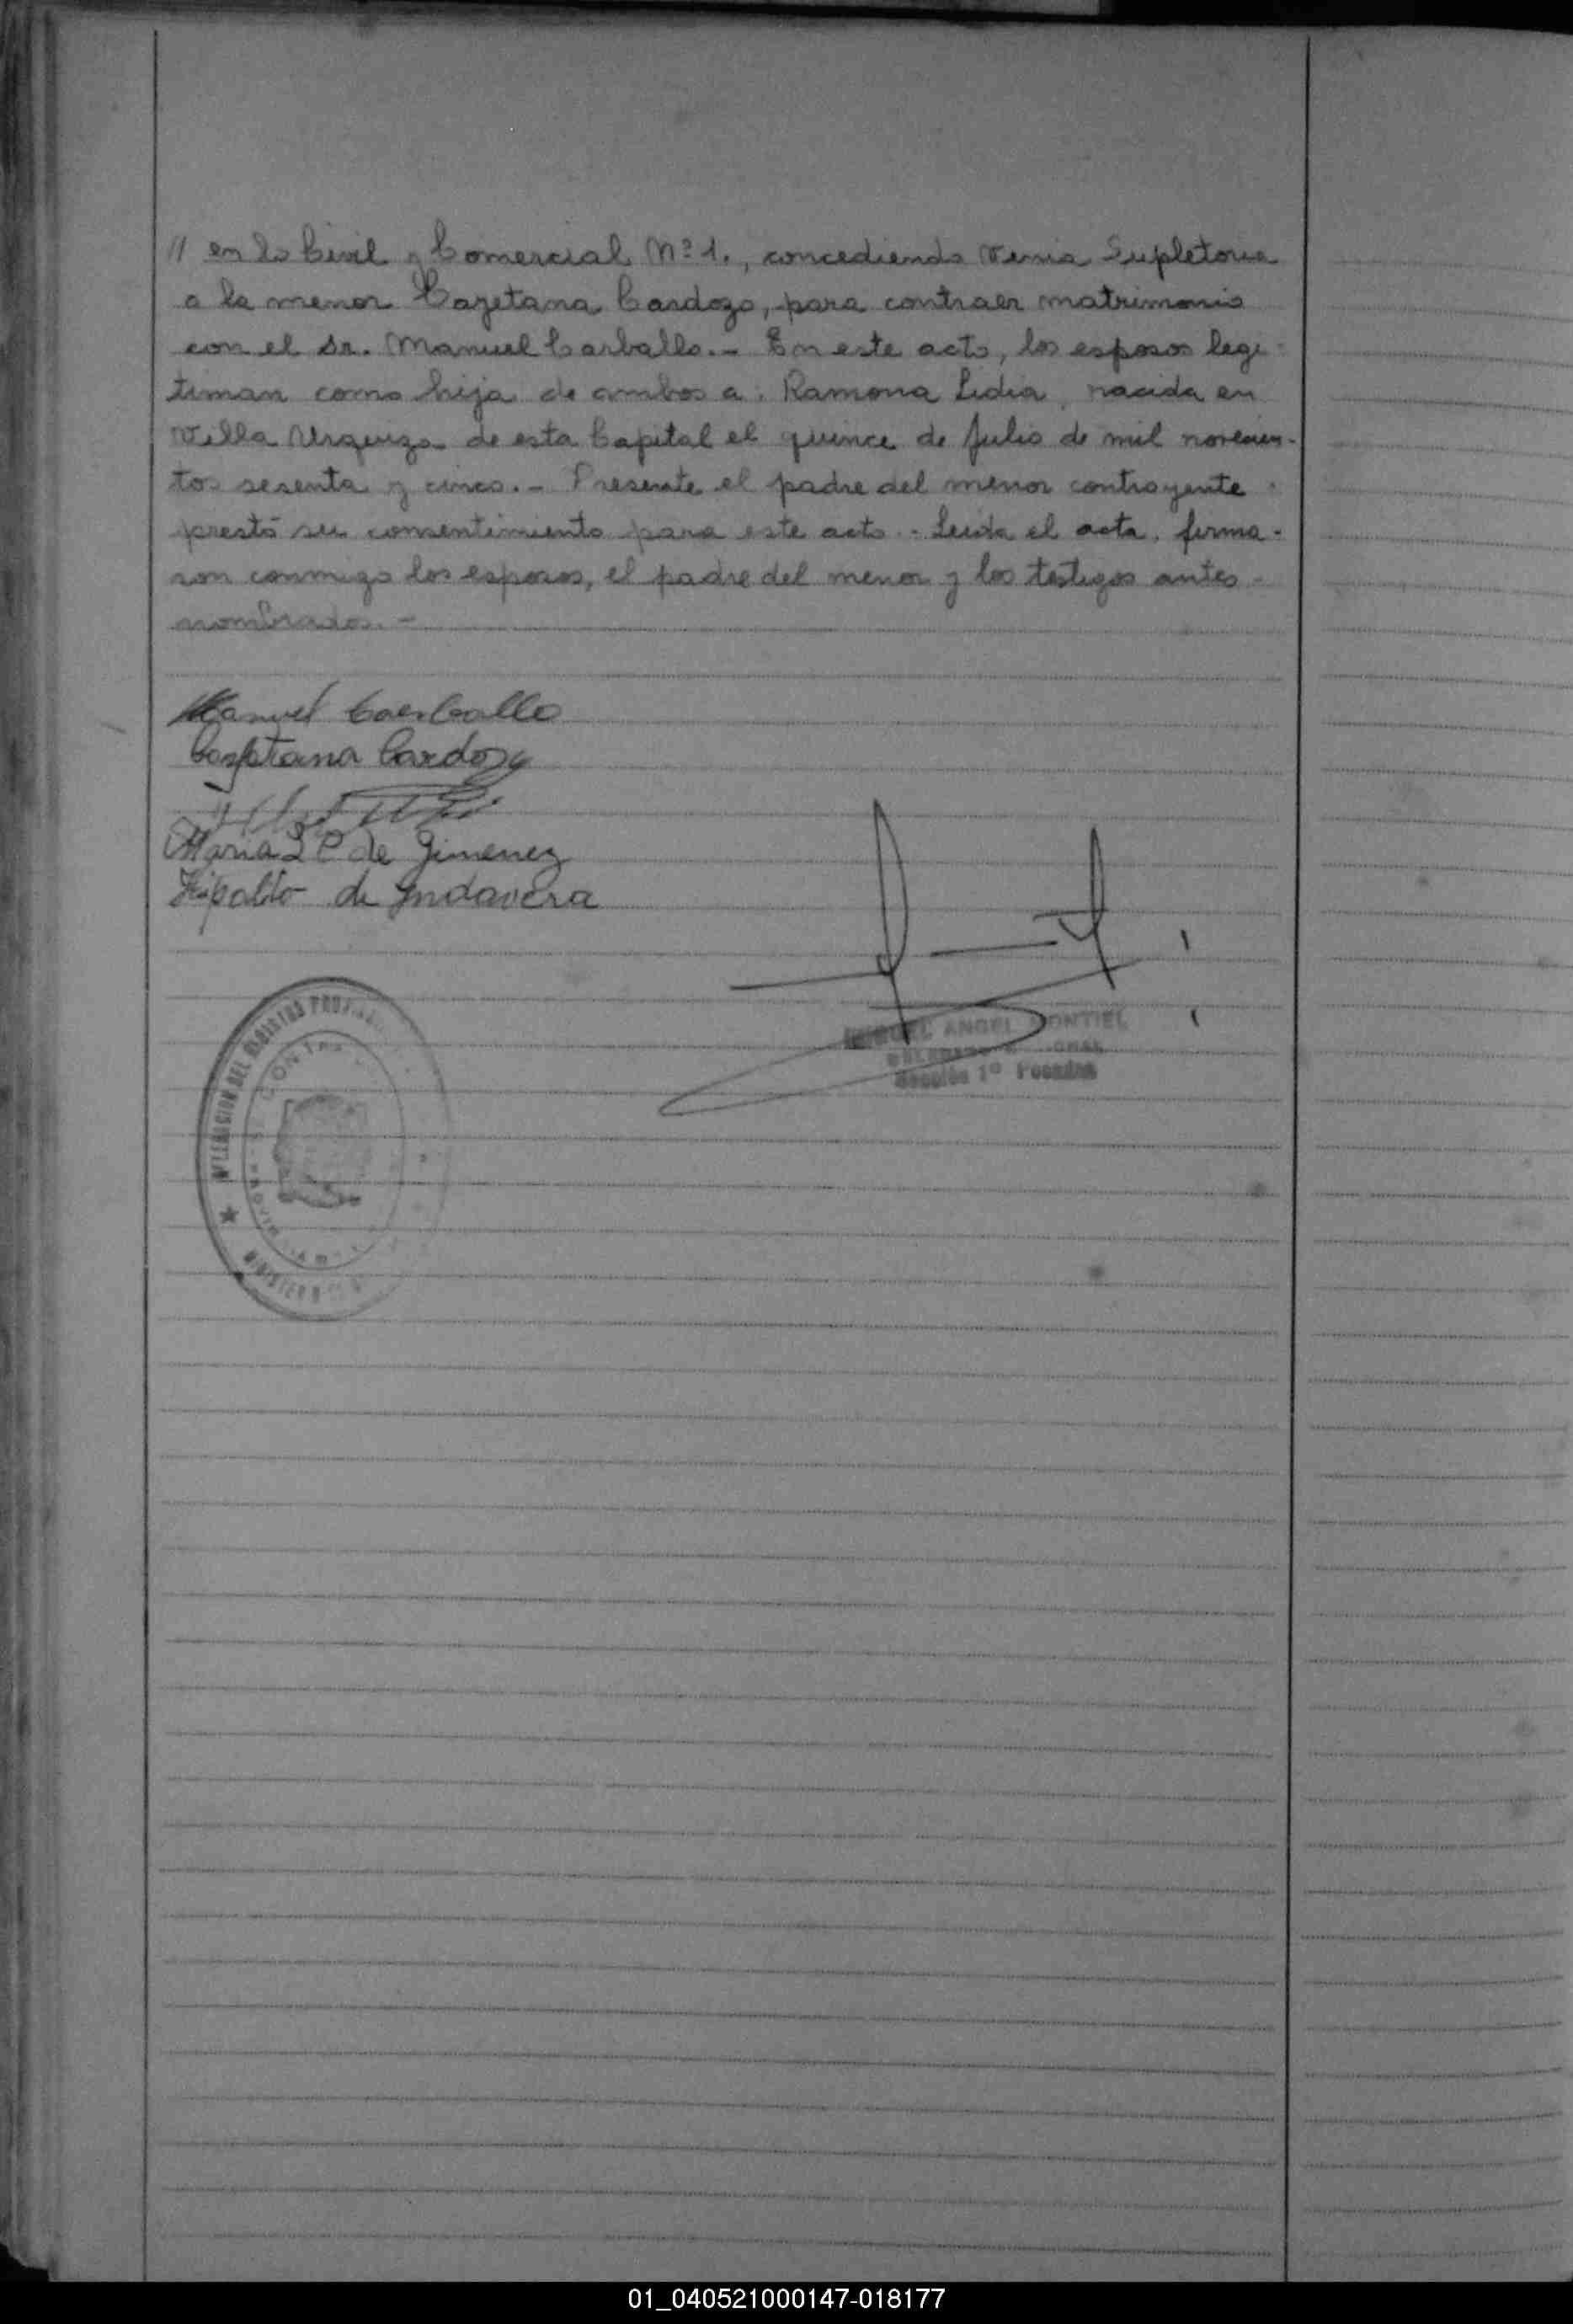 // en lo Civil y Comercial Nº 1., concediendo Venia Supletoria
a la menor Cayetana Cardozo, para contraer matrimonio
con el Sr. Manuel Carballo.- En este acto, los esposos legi-
timan como hija de ambos a: Ramona Lidia, nacida en
Villa Urquiza de esta Capital el quince de Julio de mil novecien-
tos sesenta y cinco.- Presente el padre del menor contrayente
prestó su consentimiento para este acto.- Leída el acta, firma-
ron conmigo los esposos, el padre del menor y los testigos antes
nombrados.-
Manuel Carballo
Cayetana Cardozo
Maria L P de Jimenez
Hipolito de Indavera
MIGUEL ANGEL MONTIEL
Sección 1º Posadas
DELEGACION DEL REGISTRO
01_040521000147-018177